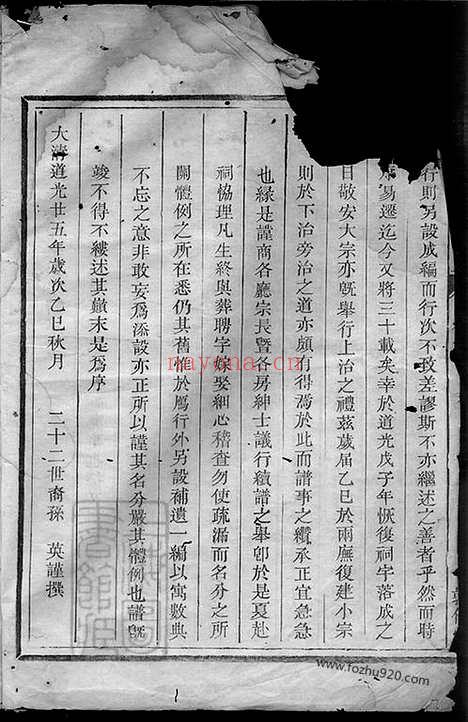 行則另設成編而行次不致差謬斯不亦繼述之善者乎然而時
易遷迄今又將三十載矣幸於道光戊子年恢復祠宇落成之
日敬安大宗亦旣舉行上治之禮茲歲届乙巳於兩廡復建小宗
則於下治旁治之道亦頗有得焉於此而譜事之纘承正宜急急
也緣是謹商各廳宗長暨各房紳士議行續譜之舉卽於是夏赴
祠恊理凡生終與葬聘字嫁娶細心稽查勿使疏漏而名分之所
關體例之所在悉仍其舊雖於鴈行外另設補遺一編以寓數典
不忘之意非敢妄爲添設亦正所以謹其名分嚴其體例也譜旣
竣不得不縷述其顛末是爲序
大淸道光廿五年歲次乙巳秋月 二十二世裔孫 英謹撰
nayona.cn
www.fozhu920.com